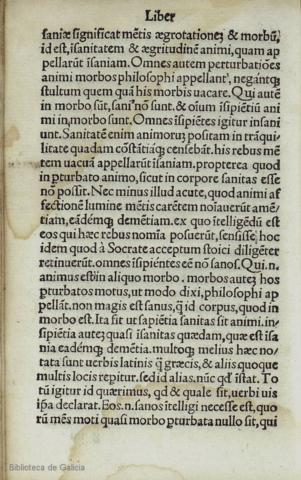 Liber
saniæ significat mẽtis ægrotationeꝫ & morbũ,
id est, ĩsanitatem & ægritudinẽ animi, quam ap
pellarũt ĩsaniam. Omnes autem perturbatiões
animi morbos philosophi appellant, negãntqꝫ
stultum quem quã his morbis uacare. Qui autẽ
in morbo sũt, sani nõ sunt. & oium ĩsipiẽtiũ ani
mi in morbo sunt. Omnes ĩsipiẽtes igitur insani
unt. Sanitatẽ enim animoruꝫ positam in trãqui
litate quadam cõstãtiaqꝫ censebãt. his rebus mẽ
tem uacuã appellarũt ĩsaniam. propterea quod
in ꝑturbato animo, sicut in corpore sanitas esse
nõ possit. Nec minus illud acute, quod animi af
fectionẽ lumine mẽtis carẽtem noĩauerũt amẽ/
tiam, eãdẽmqꝫ demẽtiam. ex quo ĩtelligẽdũ est
eos qui hæc rebus nomĩa posuerũt, sensisse hoc
idem quod à Socrate acceptum stoici diligẽter
retinuerũt. omnes ĩsipiẽntes eẽ nõ sanos. Qui.n.
animus est in aliquo morbo. morbos auteꝫ hos
ꝑturbatos motus, ut modo dixi, philosophi ap
pellãt. non magis est sanus, q̃ id corpus, quod in
morbo est. Ita fit ut sapiẽtia sanitas sit animi. in/
sipiẽtia auteꝫ quasi ĩsanitas quædam, quæ est ĩsa
nia eadémqꝫ demẽtia. multoqꝫ melius hæc no/
tata sunt uerbis latinis q̃ græcis, & aliis quoque
multis locis repitur. sed id alias. nũc qđ ĩstat. To
tũ igitur id quærimus, qđ & quale sit, uerbi uis
ip̃a declarat. Eos.n. sanos ĩtelligi necesse est, quo
rũ mẽs moti quasi morbo ꝑturbata nullo sit, qui
Biblioteca de Galicia